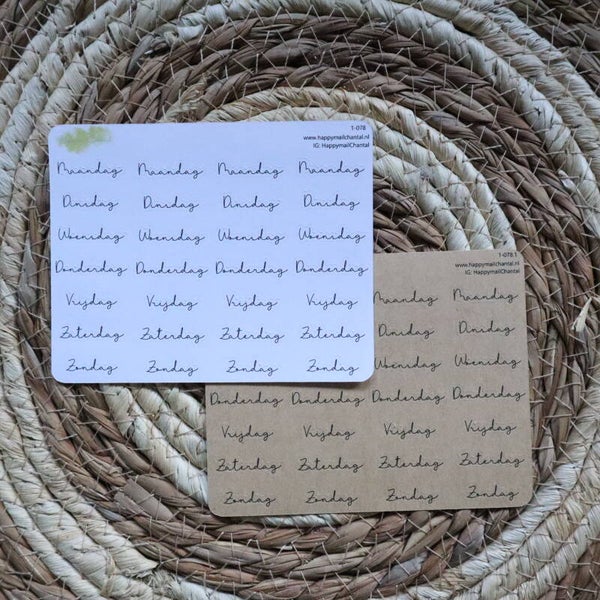 T-078
www.happymailchantal.nl
IG: HappymailChantal
Maandag Maandag Maandag Maandag
Dinsdag Dinsdag Dinsdag Dinsdag
Woensdag Woensdag Woensdag Woensdag
Donderdag Donderdag Donderdag Donderdag
Vrijdag Vrijdag Vrijdag Vrijdag
Zaterdag Zaterdag Zaterdag Zaterdag
Zondag Zondag Zondag Zondag
T-078.1
www.happymailchantal.nl
IG: HappymailChantal
Maandag Maandag
Dinsdag Dinsdag
Woensdag Woensdag
Donderdag Donderdag Donderdag Donderdag
Vrijdag Vrijdag Vrijdag Vrijdag
Zaterdag Zaterdag Zaterdag Zaterdag
Zondag Zondag Zondag Zondag